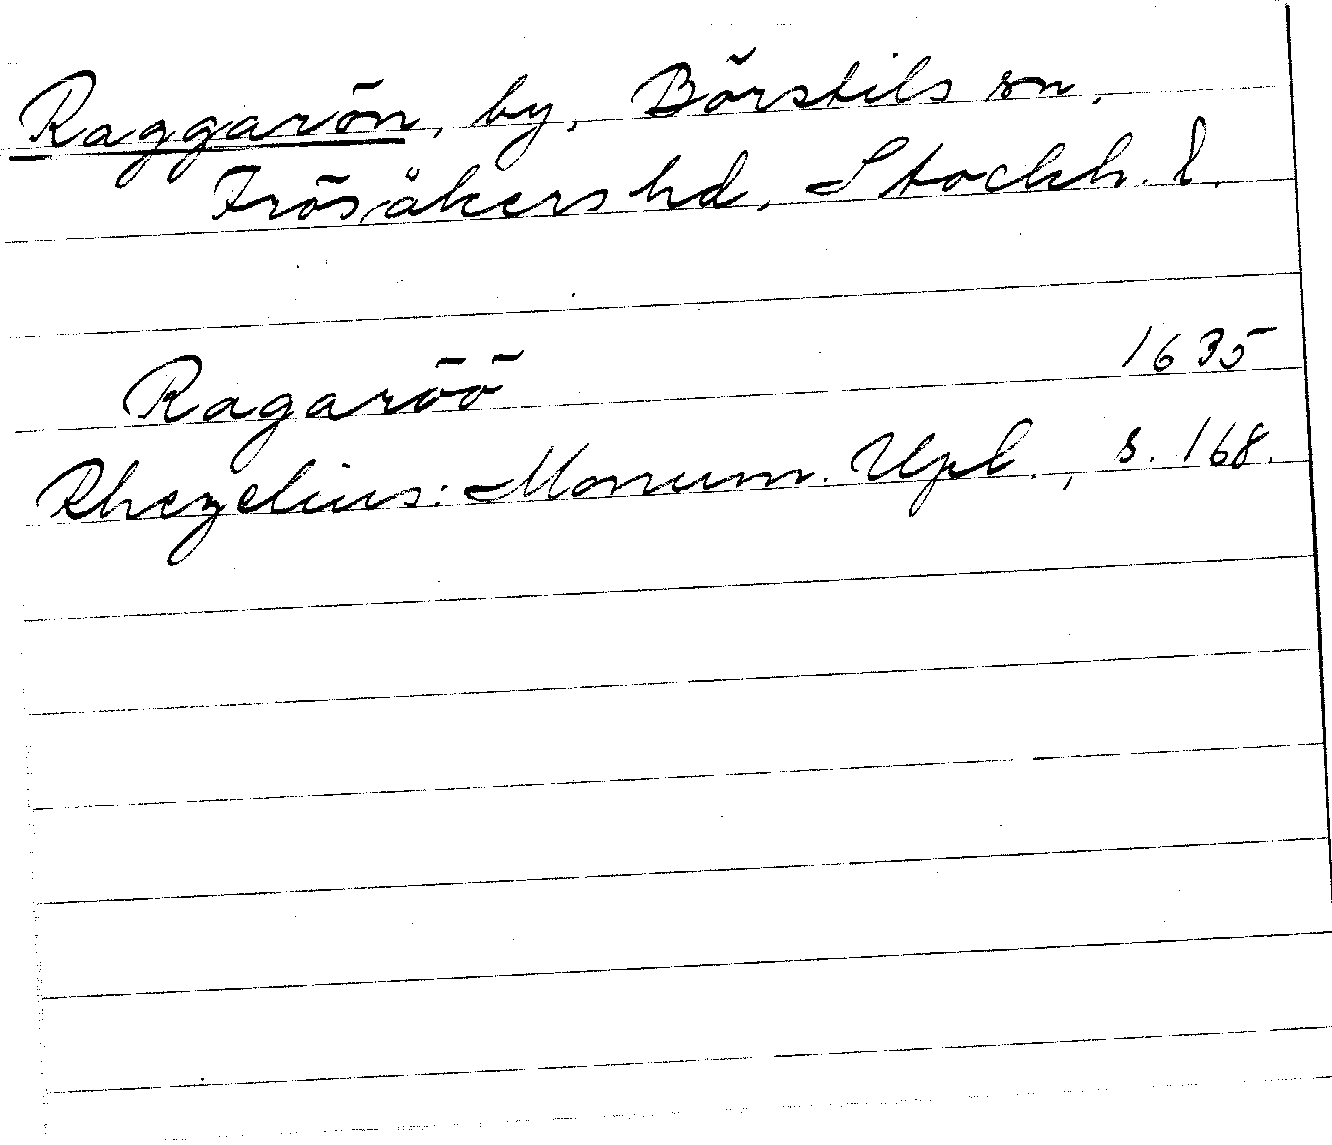 Raggarön, by, Börstils sn,
Frösåkers hd, Stockh. l.
Ragaröö 1635
Rhezelius: Monum. Upl., s. 168.